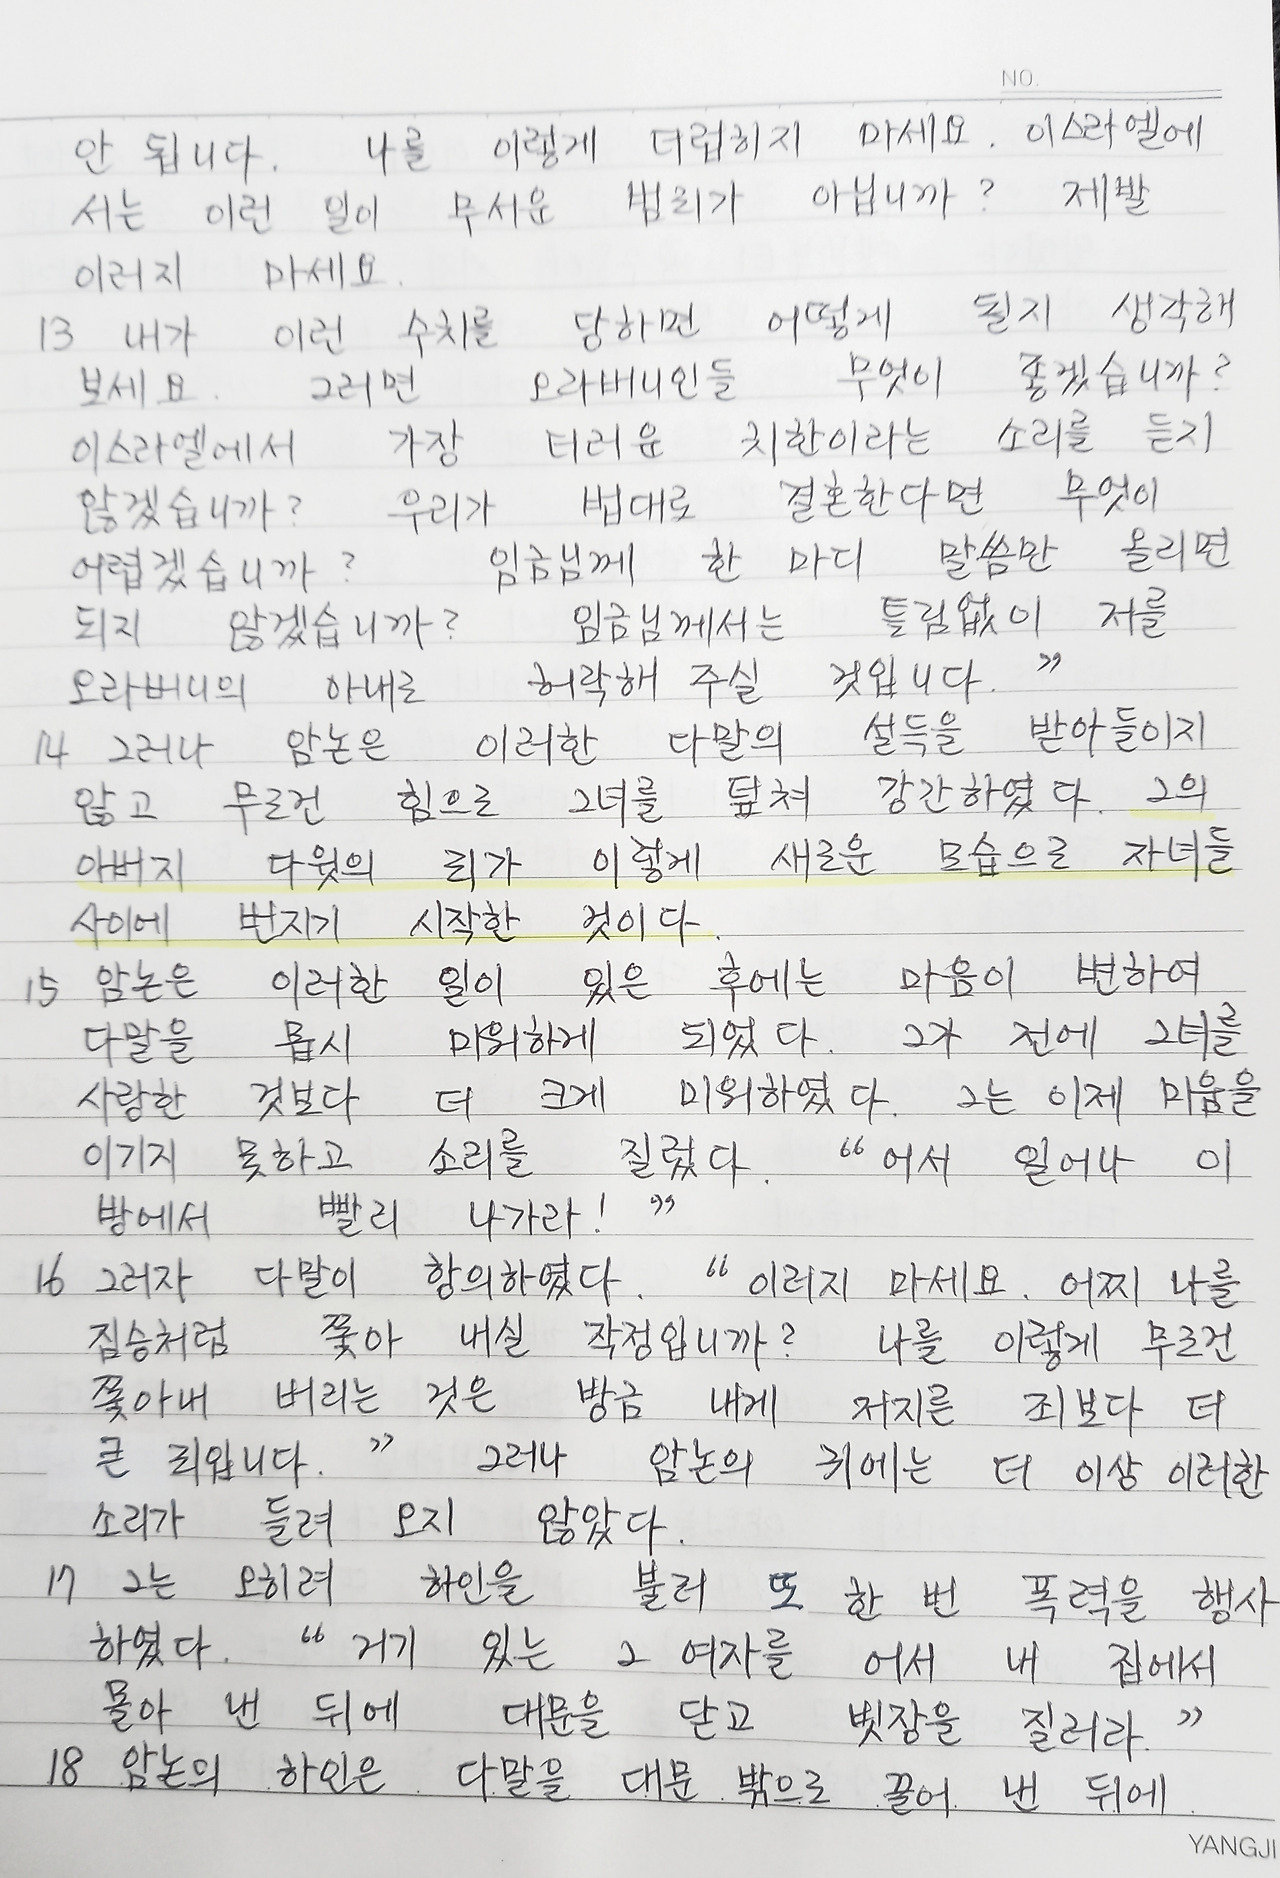 NO.
안 됩니다. 나를 이렇게 더럽히지 마세요. 이스라엘에
서는 이런 일이 무서운 범죄가 아닙니까? 제발
이러지 마세요.
13 내가 이런 수치를 당하면 어떻게 될지 생각해
보세요. 그러면 오라버니인들 무엇이 좋겠습니까?
이스라엘에서 가장 더러운 치한이라는 소리를 듣지
않겠습니까? 우리가 법대로 결혼한다면 무엇이
어렵겠습니까? 임금님께 한 마디 말씀만 올리면
되지 않겠습니까? 임금님께서는 틀림없이 저를
오라버니의 아내로 허락해 주실 것입니다."
14 그러나 암논은 이러한 다말의 설득을 받아들이지
않고 무르건 힘으로 그녀를 덮쳐 강간하였다. 그의
아버지 다윗의 죄가 이렇게 새로운 모습으로 자녀들
사이에 번지기 시작한 것이다.
15 암논은 이러한 일이 있은 후에는 마음이 변하여
다말을 몹시 미워하게 되었다. 그가 전에 그녀를
사랑한 것보다 더 크게 미워하였다. 그는 이제 미움을
이기지 못하고 소리를 질렀다. "어서 일어나 이
방에서 빨리 나가라!"
16 그러자 다말이 항의하였다. "이러지 마세요. 어찌 나를
짐승처럼 쫓아 내실 작정입니까? 나를 이렇게 무르건
쫓아내 버리는 것은 방금 내게 저지른 죄보다 더
큰 죄입니다." 그러나 암논의 귀에는 더 이상 이러한
소리가 들려 오지 않았다.
17 그는 오히려 하인을 불러 또 한 번 폭력을 행사
하였다. "거기 있는 그 여자를 어서 내 집에서
몰아 낸 뒤에 대문을 닫고 빗장을 질러라."
18 암논의 하인은 다말을 대문 밖으로 끌어 낸 뒤에
YANGJI